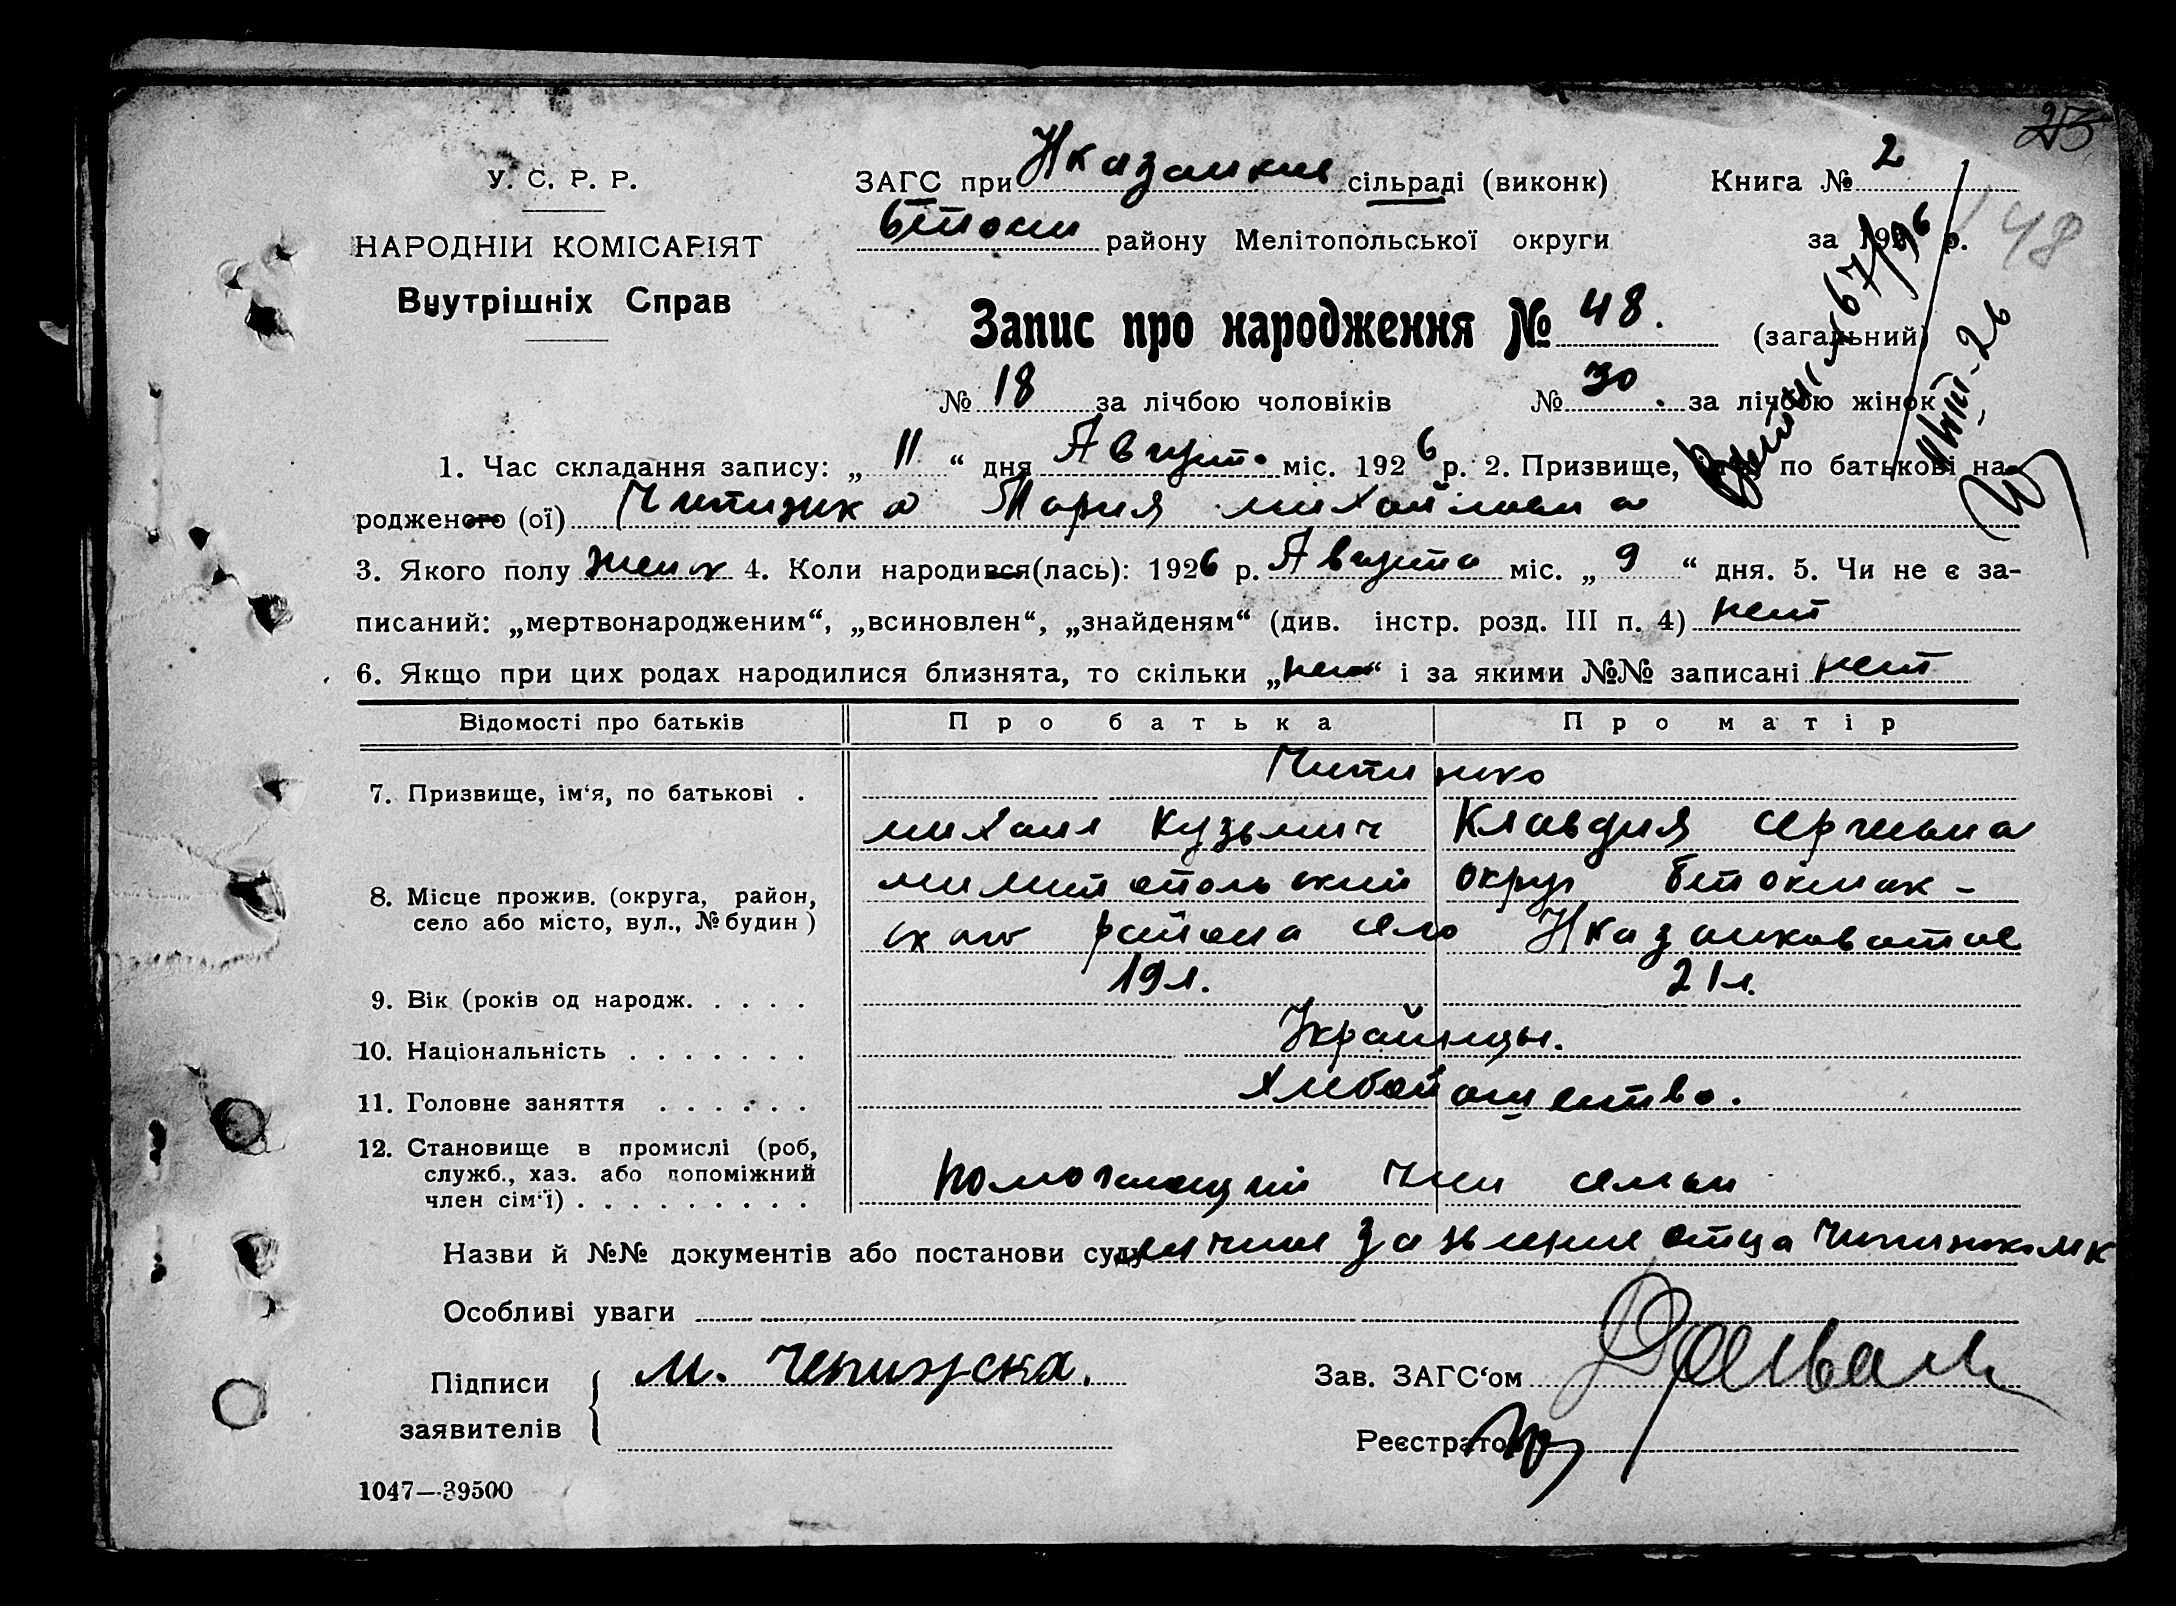 25
У. С. Р. Р.
НАРОДНІЙ КОМІСАРІЯТ
Внутрішніх Справ
ЗАГС при Нказанкие сільраді (виконк)
району Мелітопольської округи
Книга № 2
за 192 р.
48
Запис про народження № 48. (загальний)
№ 18 за лічбою чоловіків № 30. за лічбою жінок
1. Час складання запису: „ 11 “ дня Август. міс. 1926 р. 2. Призвище, по батькові на-
родженого (ої) Мария михайловна
3. Якого полу женск 4. Коли народився(лась): 1926 р. Августа міс. „ 9 “ дня. 5. Чи не є за-
писаний: „мертвонародженим“, „всиновлен“, „знайденям“ (див. інстр. розд. III п. 4) нет
6. Якщо при цих родах народилися близнята, то скільки „нет“ і за якими №№ записані нет
Відомості про батьків Про батька Про матір
7. Призвище, ім‘я, по батькові .
михаил Кузьмич Клавдия сергеевна
8. Місце прожив. (округа, район,
село або місто, вул., № будин )
округ
района село
9. Вік (років од народж. . . . . 19 л. 21 л.
10. Національність . . . . . . . Украйнцы.
11. Головне заняття . . . . . . хлебопашество.
12. Становище в промислі (роб,
служб., хаз. або допоміжний
член сім‘ї) . . . . . . . . . помогающий член семьи
Назви й №№ документів або постанови суду личное заявление отца
Особливі уваги
Підписи
заявителів
М.
Зав. ЗАГС‘ом
Реєстратор
1047—39500